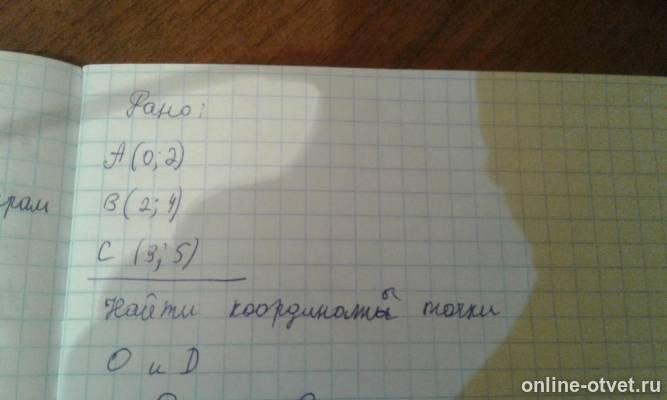 Дано:
А (0; 2)
В (2; 4)
С (3; 5)
рам
Найти координаты точки
О и D
online-otvet.ru